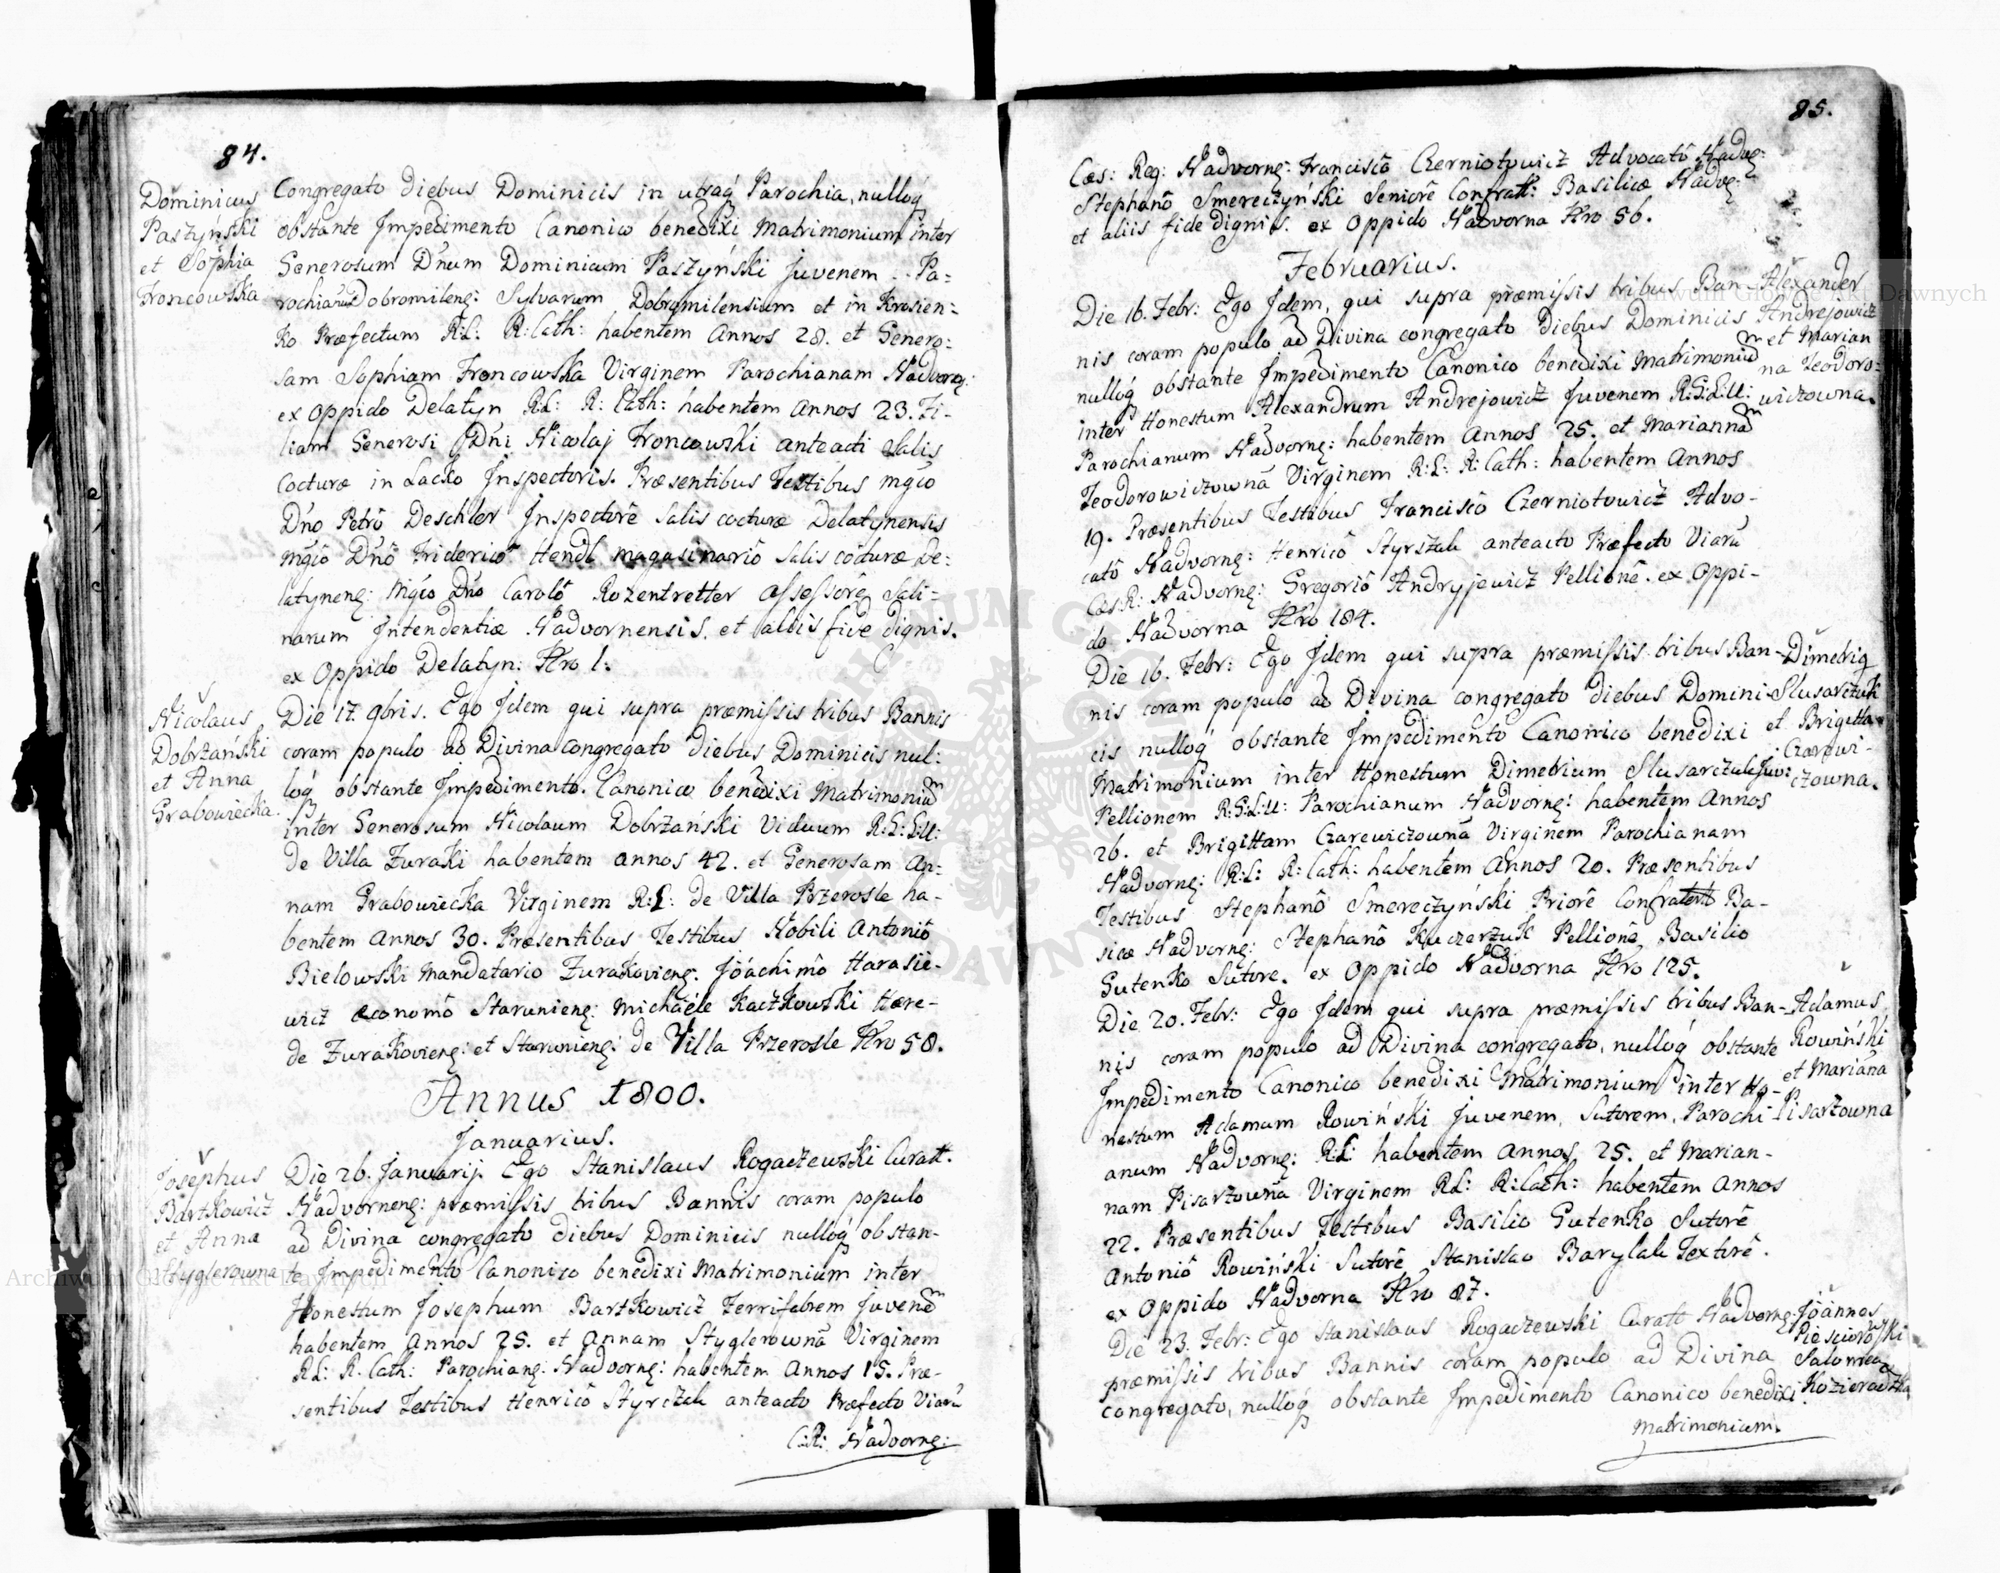 84.
Dominicus
Paszyński
et Sophia
Froncowska
Congregato diebus Dominicis in utraq̃ Parochia, nulloq̃
obstante Impedimento Canonico benedixi Matrimonium inter
Generosum Dñum Dominicum Paszyński Juvenem Pa=
rochianum Dobromileng: Sylvarum Dobromilensium et in Krosien=
ko Præfectum R:L: R:Cath: habentem Annos 28. et Genero=
sam Sophiam Froncowska Virginem Parochianam Nadvorng:
ex Oppido Delatyn R:L: R: Cath: habentem Annos 23. Fi-
liam Generosi Dñi Nicolaj Froncowski anteacti Salis
Cocturæ in Lacko Inspectoris. Præsentibus Testibus Mgco
Dño Petrô Deschler Inspectorê Salis cocturæ Delatynensis
Mgcô Dñô Fridericô Hendl magazinariô Salis cocturæ De=
latyneng: Mgco Dño Carolô Rozentretter Assessorê Sali=
narum Intendentiæ Nadvornensis. et aliis fide dignis.
ex Oppido Delatyn: Nro 1.
Nicolaus
Dobrzański
et Anna
Grabowiecka.
Die 17. 9bris. Ego Idem qui supra præmissis tribus Bannis
coram populo ad Divina congregato diebus Dominicis nul:
loq̃ obstante Impedimento Canonico benedixi Matrimoniũ
inter Generosum Nicolaum Dobrzański Viduum R:L:
de Villa Zuraki habentem annos 42. et Generosam An-
nam Grabowiecka Virginem R:L: de Villa Przerosle ha-
bentem Annos 30. Præsentibus Testibus Nobili Antoniô
Bielowski Mandatario Zurakovieng: Jóachimô Harasie-
wicz œconomô Starunieng: Michaële Kaczkowski Hære-
de Zurakovieng: et Starunieng: de Villa Przerosle Nro 58.
Annus 1800.
Januarius.
Josephus
Bartkowicz
et Anna
Styglerowna
Die 26. Januarij. Ego Stanislaus Rogaczewski Curatt.
Nadvorneng: præmissis tribus Bannis coram populo
ad Divina congregato diebus Dominicis nulloq̃ obstan-
te Impedimento Canonico benedixi Matrimonium inter
Honestum Josephum Bartkowicz Ferrifabrem Juvenẽ
habentem Annos 25. et Annam Styglerownã Virginem
R:L: R. Cath: Parochiang: Nadvorng: habentem Annos 15. Præ-
sentibus Testibus Henricô Styrczak anteacto Præfecto Viarũ
C:R: Nadvorng:
85.
Cæs: Reg: Nadvorng: Franciscô Czerniotowicz Advocatô Nadvg:
Stephanô Smereczyński Seniorê Confratt: Basilicæ Nadvg:
et aliis fide dignis. ex Oppido Nadvorna Nro 56.
Februarius.
Die 16. Febr: Ego Idem, qui supra præmissis tribus Ban-
nis coram populo ad Divina congregato diebus Dominicis
nulloq̃ obstante Impedimento Canonico benedixi Matrimoniũ
inter Honestum Alexandrum Andrejowicz Juvenem R:G:L:U:
Parochianum Nadvorng: habentem Annos 25. et Mariannã
Teodorowiczownã Virginem R:L: R:Cath: habentem Annos
19. Præsentibus Testibus Franciscô Czerniotowicz Advo-
catô Nadvorng: Henricô Styrszak anteacto Præfecto Viarũ
Cæs R: Nadvorng: Gregoriô Andryjewicz Pellionê. ex Oppi-
do Nadvorna Nro 184.
Alexander
Andrejowicz
et Marian
na Teodoro=
wiczowna.
Die 16. Febr: Ego Idem qui supra præmissis tribus Ban-
nis coram populo ad Divina congregato diebus Domini-
cis nulloq̃ obstante Impedimento Canonico benedixi
Matrimonium inter Honestum Dimetrium Slusarczuk Juv:
Pellionem R:G:L:U: Parochianum Nadvorng: habentem Annos
26. et Brigittam Czarewiczownã Virginem Parochianam
Nadvorng: R:L: R:Cath: habentem Annos 20. Præsentibus
Testibus Stephanô Smereczyński Priorê Confratert Ba-
sicæ Nadvorng: Stephanô Kuczerzuk Pellionê Basilio
Gutenko Sutore. ex Oppido Nadvorna Nro 125.
Dimetrig
Slusarczuk
et Brigitta
Czarewi-
czowna.
Die 20. Febr: Ego Idem qui supra præmissis tribus Ban-
nis coram populo ad Divina congregato, nulloq̃ obstante
Impedimento Canonico benedixi Matrimonium inter Ho-
nestum Adamum Rowiński Juvenem, Sutorem, Parochi-
anum Nadvorng: R:L: habentem Annos 25. et Marian-
nam Pisarzownã Virginem R:L: R:Cath: habentem Annos
22. Præsentibus Testibus Basilio Gutenko Sutorê
Antoniô Rowiński Sutorê Stanislao Barylak Textorê.
ex Oppido Nadvorna Nro 87.
Adamus
Rowiński
et Mariãna
Pisarzowna
Die 23. Febr: Ego Stanislaus Rogaczewski Curatt Nadvorng:
præmissis tribus Bannis coram populo ad Divina
congregato, nulloq̃ obstante Impedimento Canonico benedixi
Matrimonium.
Jóannes
Salomea
Kozieradzka
Archiwum Główne Akt Dawnych
Archiwum Główne Akt Dawnych
ARCHIWUM GŁÓWNE AKT DAWNYCH